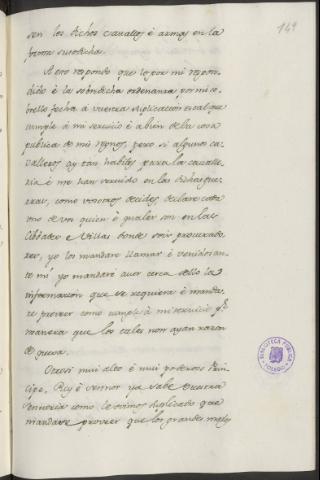 149
sen los dichos cavallos é armas en la
forma susodicha.
A esto respondo que lo por mi respon-
dido é la sobredicha ordenanza por mi so-
brello fecha á vuestra suplicacion es al que
cumple á mi servicio é a bien de la cosa
publica de mis regnos, pero si algunos ca-
valleros ay tan habiles para la cavalle-
ria é me han servido en las dichas gue-
rras, como vosotros decides, declare cada
uno de vos quien é quales son en las
Cibdades e Villas donde sois procurado-
res, yo los mandare llamar é venidos an-
te mi yo mandaré aver cerca dello la
informacion que se requiera é manda-
re proveer como cumple á mi servicio por
manera que los tales non ayan razon
de quexa.
Otrosi mui alto é mui poderoso Prin-
cipe, Rey é Sennor ya sabe Vuestra
Sennoria como le ovimos suplicado que
mandase proveer que los grandes males
BIBLIOTECA PUBLICA
TOLEDO